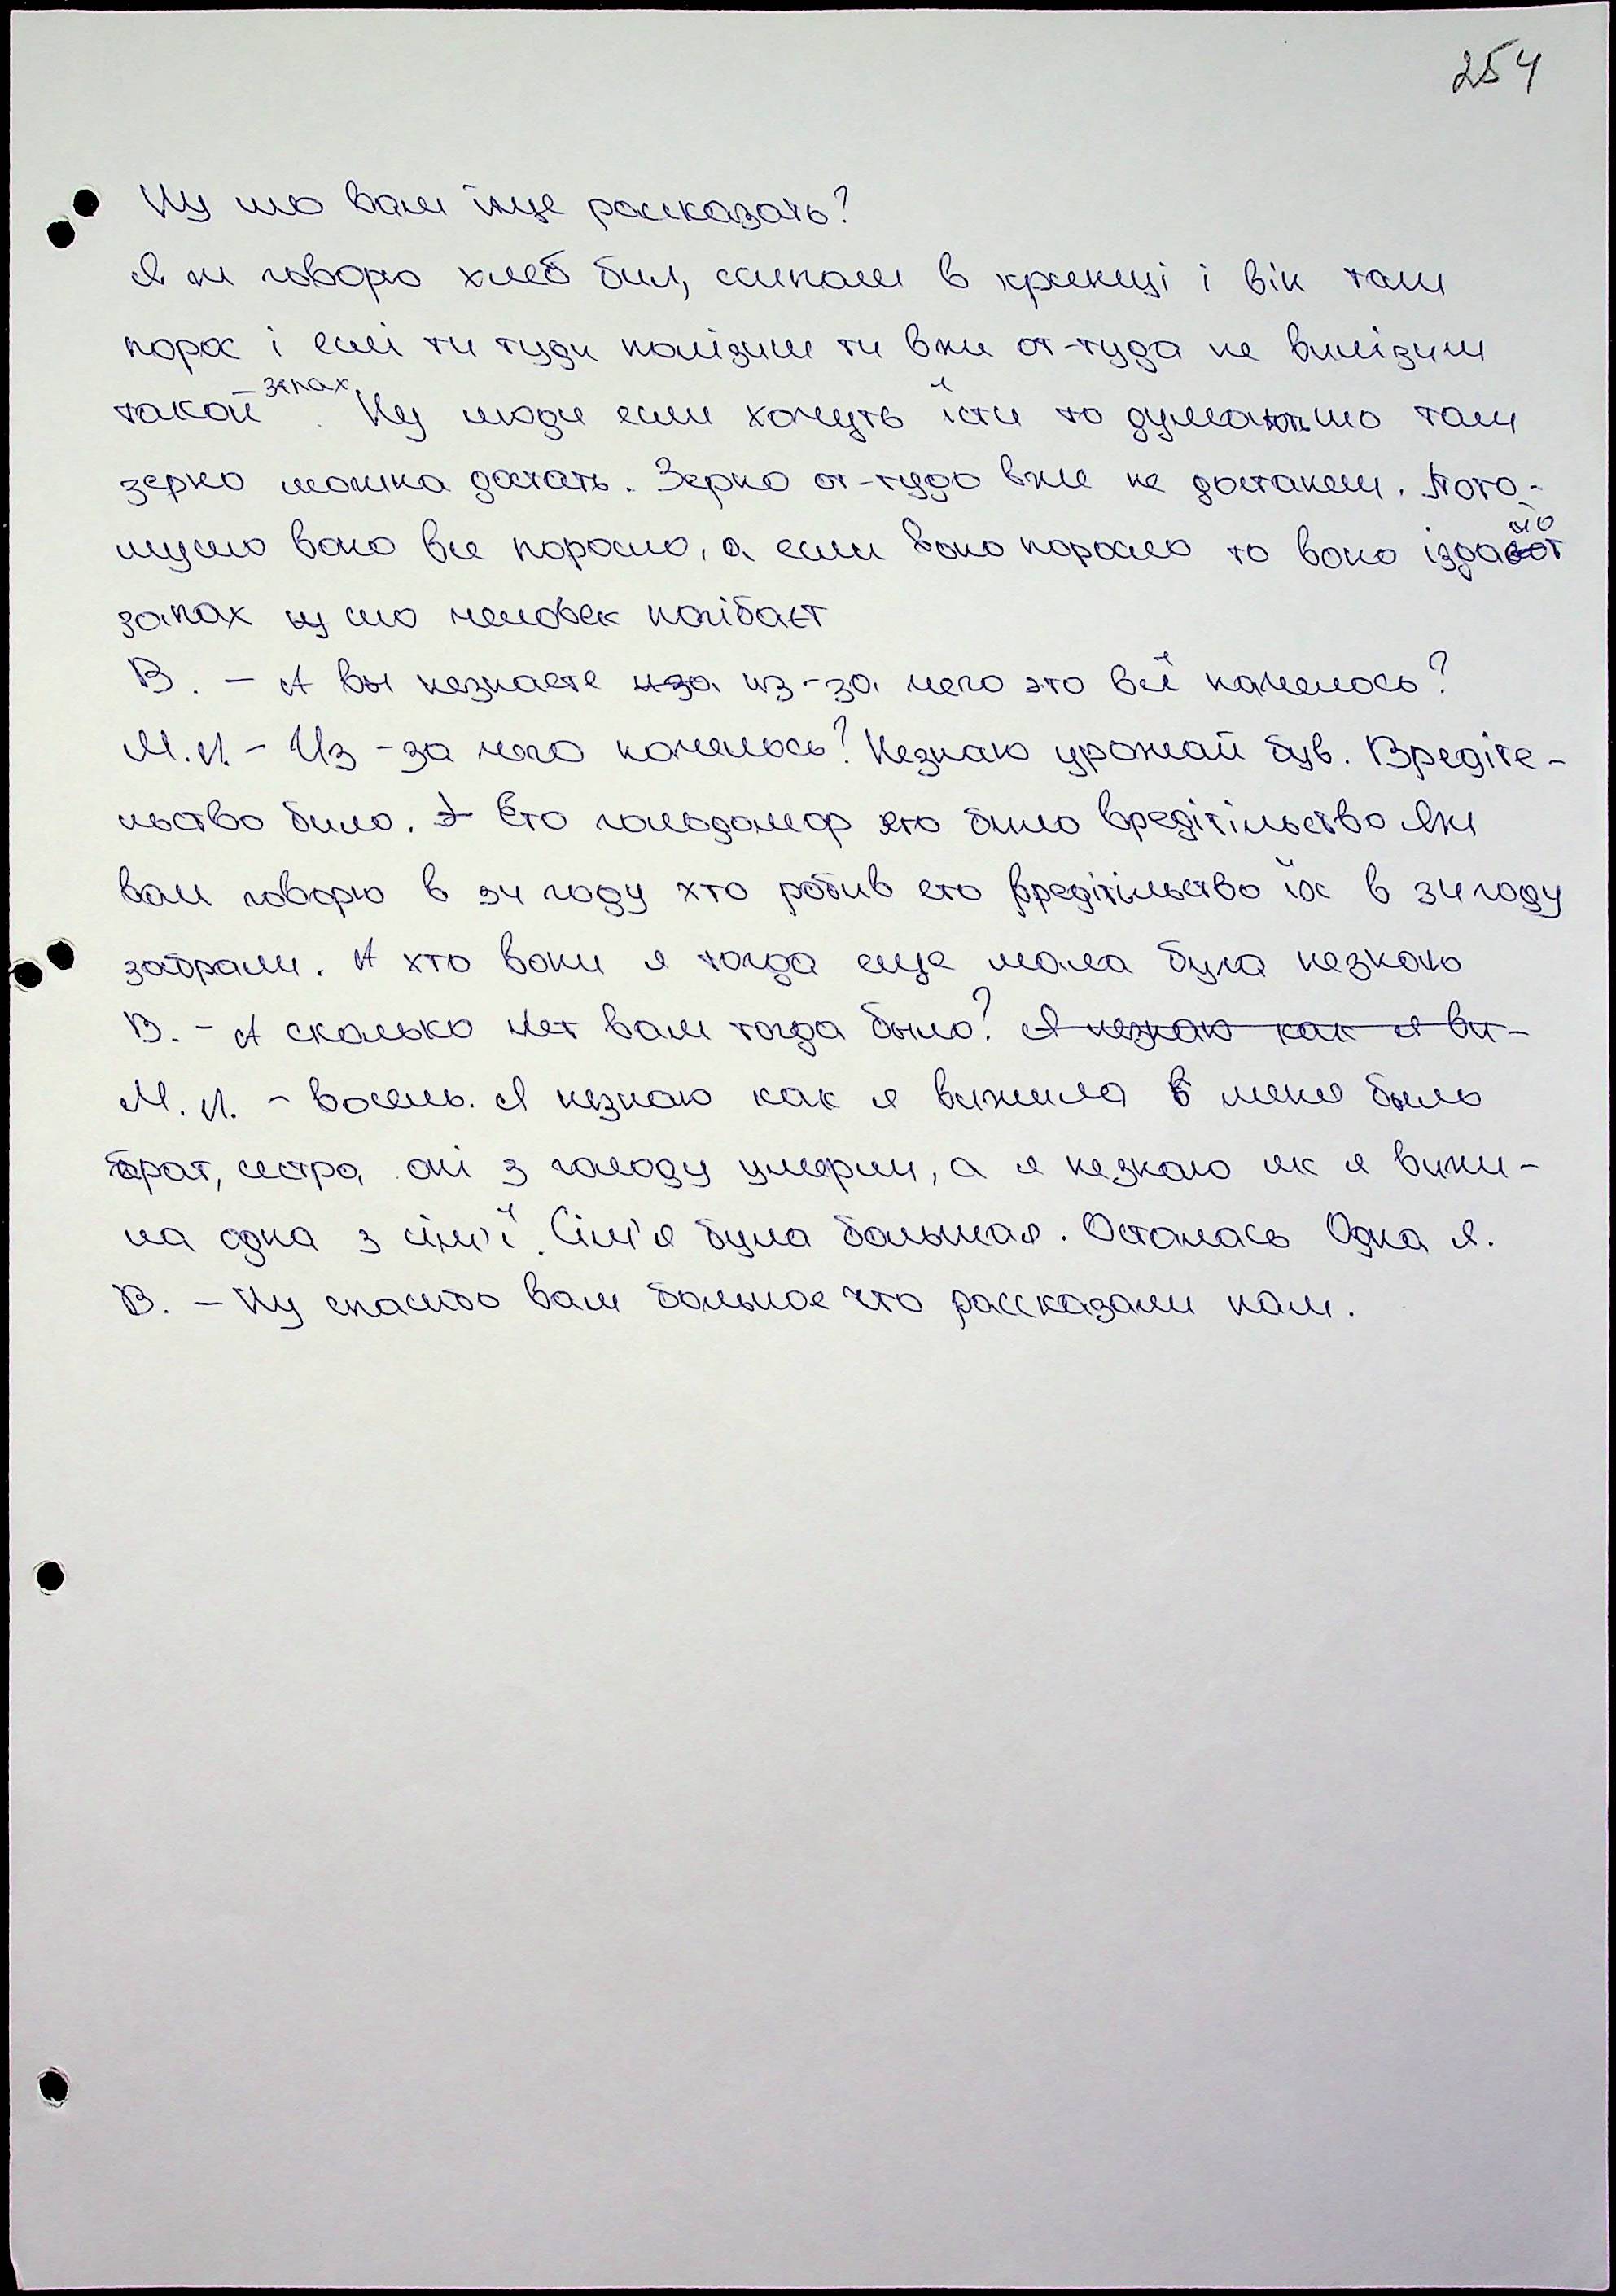 254
Ну шо вам їще рассказать?
Я ж говорю хлеб бил, сипали в криниці і він там
порос і еслі ти туди полізиш ти вже от-туда не вилізиш
такой запах. Ну люди если хочуть їсти то думають шо там
зерно можна достать. Зерно от-тудо вже не достанеш. Пото-
мушо воно все поросло, а если воно поросло то воно іздайот
запах ну шо человек погібаєт
В. – А вы незнаете иза из-за чего это всё началось?
М.И. – Из-за чого началось? Незнаю урожай був. Вредіте-
льство било. Э Ето голодомор ето било вредітільство Я же
вам говорю в 34 году хто робив ето вредітільство їх в 34 году
забрали. А хто вони я тогда еще мала була незнаю
В. – А сколько лет вам тогда было? Я незнаю как я ви-
М.И. – восемь. Я незнаю как я вижила в мене было
брат, сестра, оні з голоду умерли, а я незнаю як я вижи-
ла одна з сім'ї. Сім'я була большая. Осталась Одна я.
В. – Ну спасибо вам большое что рассказали нам.